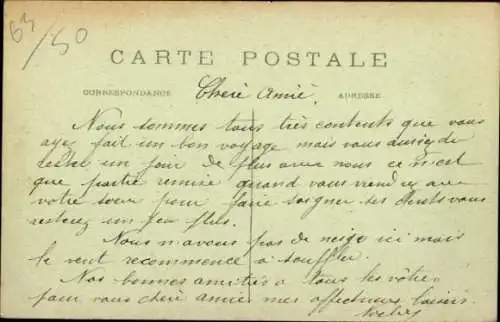 63/50
CARTE POSTALE
CORRESPONDANCE Cheré Amié, ADRESSE
Nous sommes tous très contents que vous
ayez fait un bon voyage mais vous auriez du
rester un jour de plus avec nous ce n'est
que partie remise quand vous viendrez avec
votre sœur pour faire soigner ses dents vous
resterez un peu plus.
Nous n'avons pas de neige ici mais
le vent recommence à souffler.
Nos bonnes amitiés à tous les vôtres
pour vous cheré amie mes affectueux baisers.